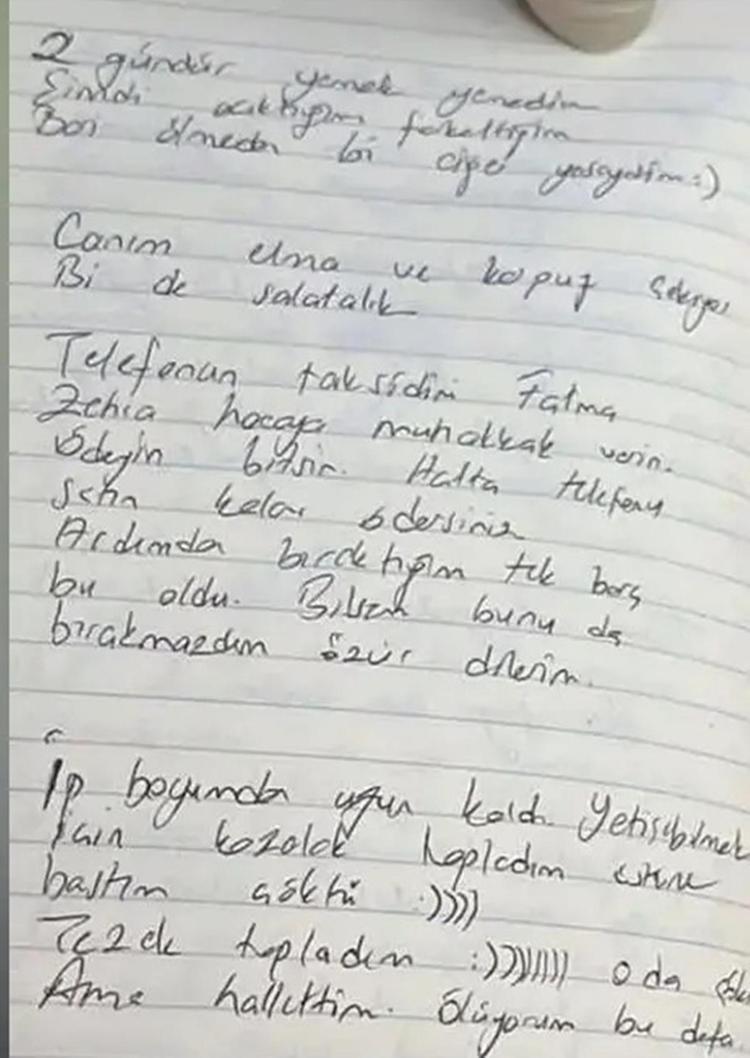 2 gündür yemek yemedim
Şimdi acıktığım farkettiğim
Ben ölmeden bi cips yeseydim :)
Canım elma ve karpuz çekiyor
Bi de salatalık
Telefonun taksidini Fatma
Zehra hocaya muhakkak verin.
Ödeyin bitsin. Hatta telefonu
satın kalanı ödersiniz
Ardımda bıraktığım tek borç
bu oldu. Bilsem bunu da
bırakmazdım özür dilerim.
İp boyumdan uzun kaldı. Yetişebilmek
için kozalak topladım üstüne
bastım çöktü :))))
Tezek topladım :))))))))) o da
Ama hallettim. Ölüyorum bu defa.